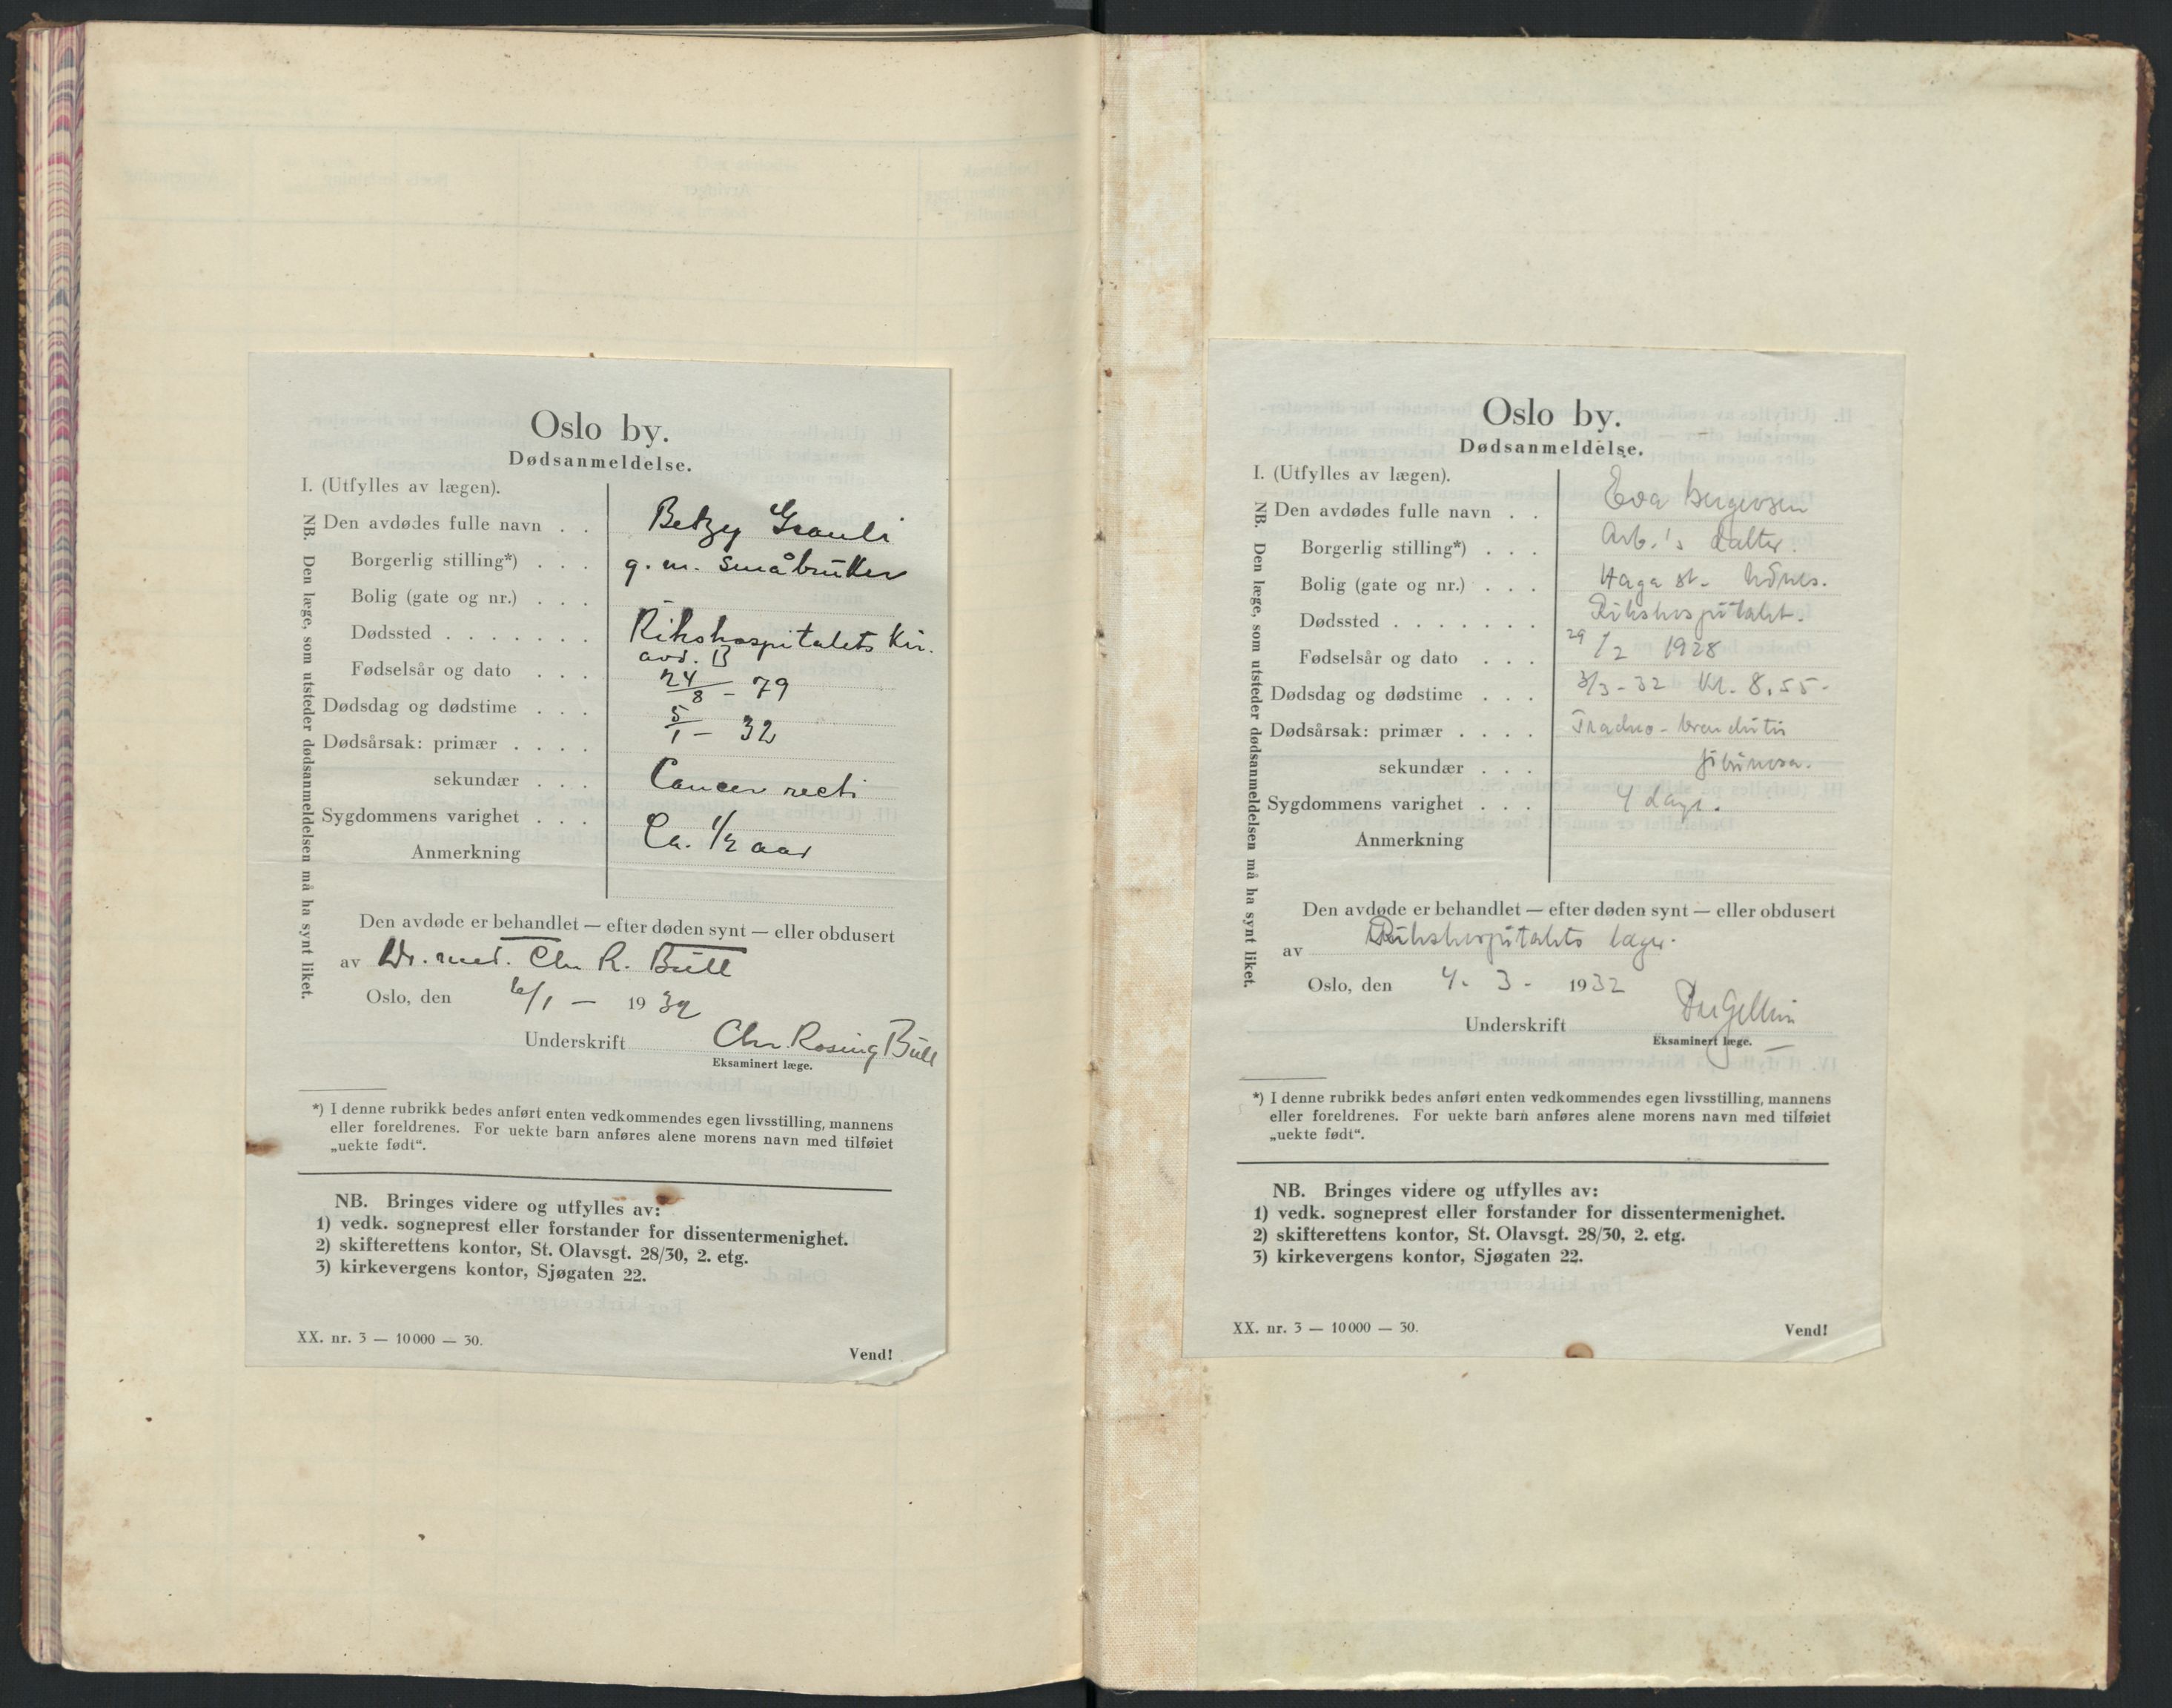 Oslo by.
Dødsanmeldelse.
I. (Utfylles av lægen).
Den avdødes fulle navn . . Betzy Grauli
Borgerlig stilling*) . . . g. m. småbruker
Bolig (gate og nr.) . . .
Dødssted . . . . . . . Rikshospitalets Kir.
avd. B
Fødselsår og dato . . . 24/8 - 79
Dødsdag og dødstime . . . 5/1 - 32
Dødsårsak: primær . . . .
sekundær . . . Cancer recti
Sygdommens varighet . . . Ca. 1/2 aar
Anmerkning
NB. Den læge, som utsteder dødsanmeldelsen må ha synt liket.
Den avdøde er behandlet — efter døden synt — eller obdusert
av Dr. med. Chr R. Bull
Oslo, den 6/1 - 1932
Underskrift Chr. Rosing Bull
Eksaminert læge.
*) I denne rubrikk bedes anført enten vedkommendes egen livsstilling, mannens
eller foreldrenes. For uekte barn anføres alene morens navn med tilføiet
„uekte født“.
NB. Bringes videre og utfylles av:
1) vedk. sogneprest eller forstander for dissentermenighet.
2) skifterettens kontor, St. Olavsgt. 28/30, 2. etg.
3) kirkevergens kontor, Sjøgaten 22.
XX. nr. 3 — 10000 — 30.
Vend!
Oslo by.
Dødsanmeldelse.
I. (Utfylles av lægen).
Den avdødes fulle navn . . Eva Bergersen
Borgerlig stilling*) . . . Arb.'s datter.
Bolig (gate og nr.) . . . Haga st.
Dødssted . . . . . . . Rikshospitalet.
Fødselsår og dato . . . 29/2 1928
Dødsdag og dødstime . . . 3/3 - 32 Kl. 8.55-
Dødsårsak: primær . . . . Tracheo-bronchitis
sekundær . . . fibrinosa.
Sygdommens varighet . . . 4 dage.
Anmerkning
NB. Den læge, som utsteder dødsanmeldelsen må ha synt liket.
Den avdøde er behandlet — efter døden synt — eller obdusert
av Rikshospitalets læger.
Oslo, den 4. 3 - 1932
Underskrift
Eksaminert læge.
*) I denne rubrikk bedes anført enten vedkommendes egen livsstilling, mannens
eller foreldrenes. For uekte barn anføres alene morens navn med tilføiet
„uekte født“.
NB. Bringes videre og utfylles av:
1) vedk. sogneprest eller forstander for dissentermenighet.
2) skifterettens kontor, St. Olavsgt. 28/30, 2. etg.
3) kirkevergens kontor, Sjøgaten 22.
XX. nr. 3 — 10000 — 30.
Vend!